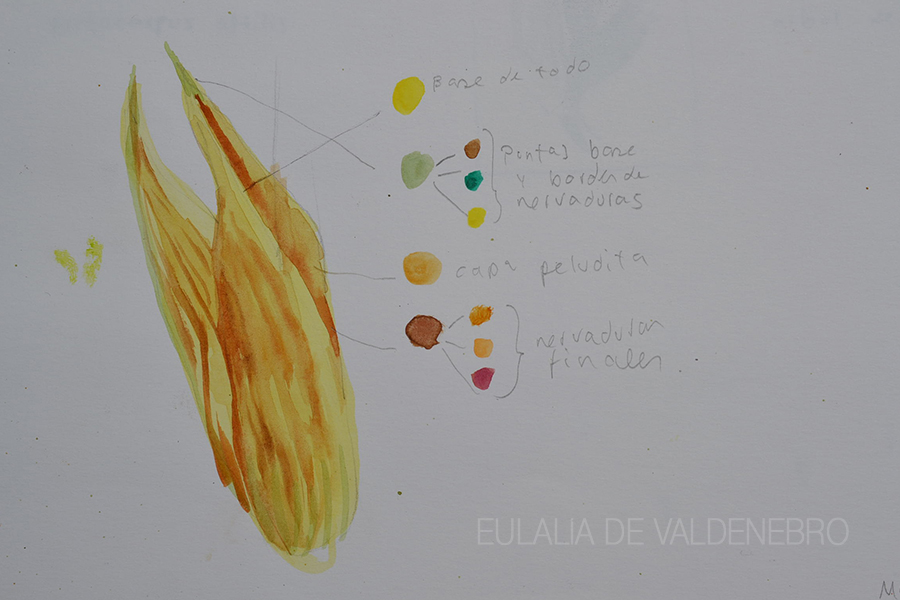 Base de todo
puntas base
y bordes de
nervaduras
capa peludita
nervaduras
finales
EULALIA DE VALDENEBRO
M